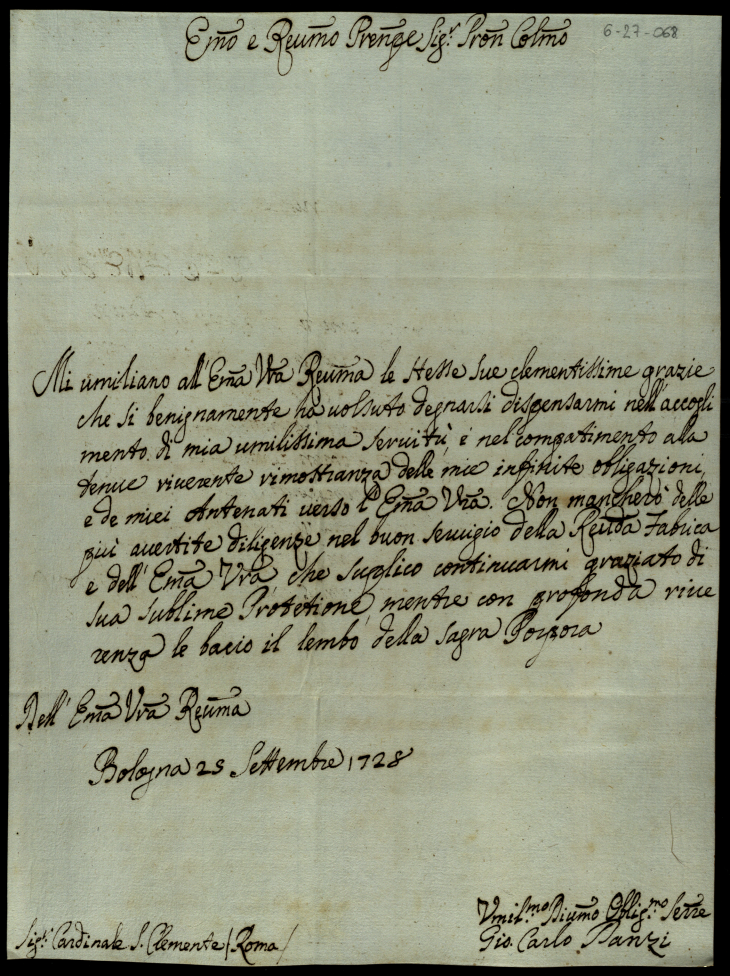 Em̅o e Reum̅o Prenp̅e Sig.r Pron̅ Colm̅o
6-27-068
Mi umiliano all'Em̅a Vr̅a Reum̅a le stesse sue clementissime grazie
che si benignamente ha uolsuto degnarsi dispensarmi nell'accogli
mento di mia umilissima seruitù, e nel compatimento alla
tenue riuerente rimostranza delle mie infinite obligazioni,
e de miei Antenati uerso l'Em̅a Vr̅a. Non mancherò delle
più auertite diligenze nel buon seruigio della Reud̅a Fabrica
e dell'Em̅a Vr̅a che supplico continuarmi graziato di
sua sublime Protetione, mentre con profonda riue
renza le bacio il lembo della sagra Porpora
Dell'Em̅a Vr̅a Reum̅a
Bologna 25 Settembre 1728
Vmil.mo Dium̅o Oblig.mo Serr̅e
Gio. Carlo Panzi
Sig.r Cardinale S. Clemente /Roma/